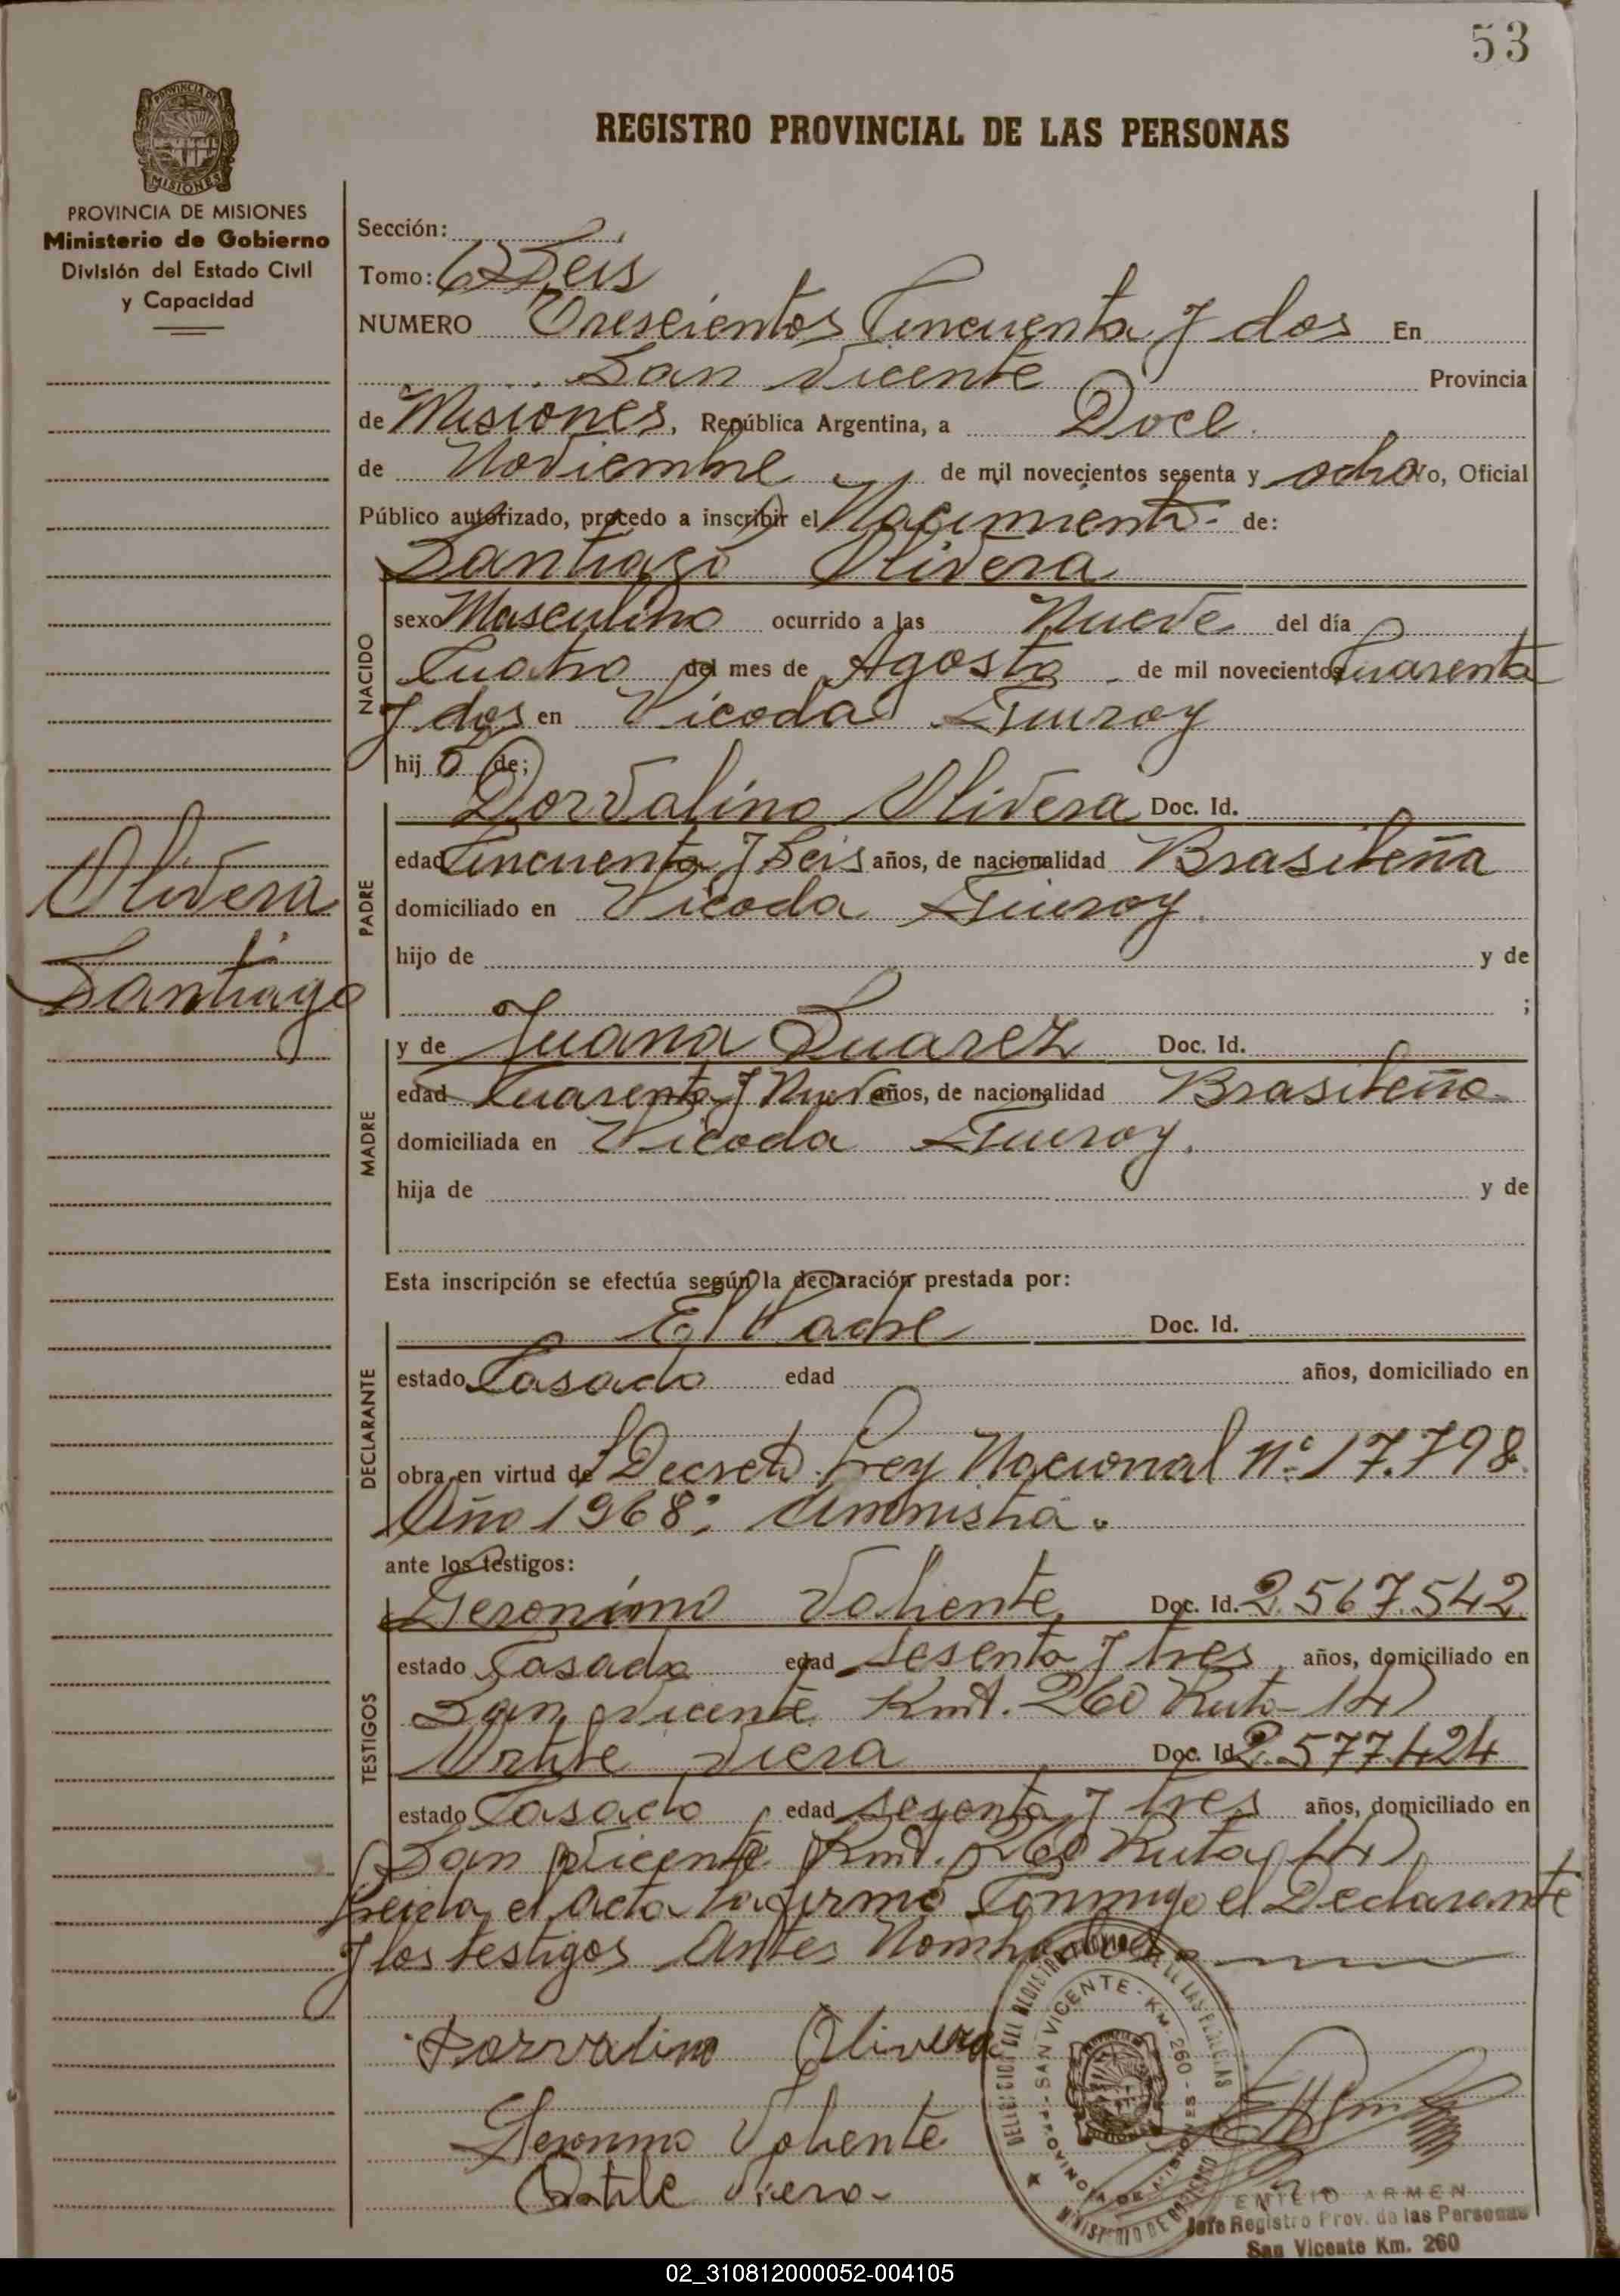 53
PROVINCIA DE
MISIONES
PROVINCIA DE MISIONES
Ministerio de Gobierno
División del Estado Civil
y Capacidad
REGISTRO PROVINCIAL DE LAS PERSONAS
Sección:
Tomo: 6 Seis
NUMERO Tresçientos Cincuenta y dos En
San Vicente Provincia
de Misiones, República Argentina, a Doce
de Noviembre de mil novecientos sesenta y ocho Yo, Oficial
Público autorizado, procedo a inscribir el Nacimiento de:
Santiago Olivera
NACIDO
sexo Masculino ocurrido a las Nueve del día
Cuatro del mes de Agosto de mil novecientos Cuarenta
y dos en Picada
hij o de:
Olivera
Santiago
PADRE
Dorvalino Olivera Doc. Id.
edad Cincuenta y Seis años, de nacionalidad Brasileña
domiciliado en Picada
hijo de y de
;
MADRE
y de Juana Suarez Doc. Id.
edad Cuarenta y Nueve años, de nacionalidad Brasileña
domiciliada en Picada
hija de y de
Esta inscripción se efectúa según la declaración prestada por:
DECLARANTE
El Padre Doc. Id.
estado Casado edad años, domiciliado en
obra en virtud de Decreto Ley Nacional Nº 17.798
Año 1968: Amnistia.
ante los testigos:
TESTIGOS
Geronimo Valiente Doc. Id. 2.567.542
estado Casado edad sesenta y tres años, domiciliado en
San Vicente Kmt. 260 Ruta 14
Viera Doc. Id. 2.577.424
estado Casado edad sesenta y tres años, domiciliado en
San Vicente Kmt. 260 Ruta 14
Leida el Acta la firma Conmigo el Declarante
y los testigos Antes Nombrados
Dorvalino Olivera
Geronimo Valiente
Viera
SAN VICENTE - KM. 260 - PROVINCIA DE MISIONES
MINISTERIO DE GOBIERNO
EMILIO ARMEN
Jefe Registro Prov. de las Personas
San Vicente Km. 260
02_310812000052-004105